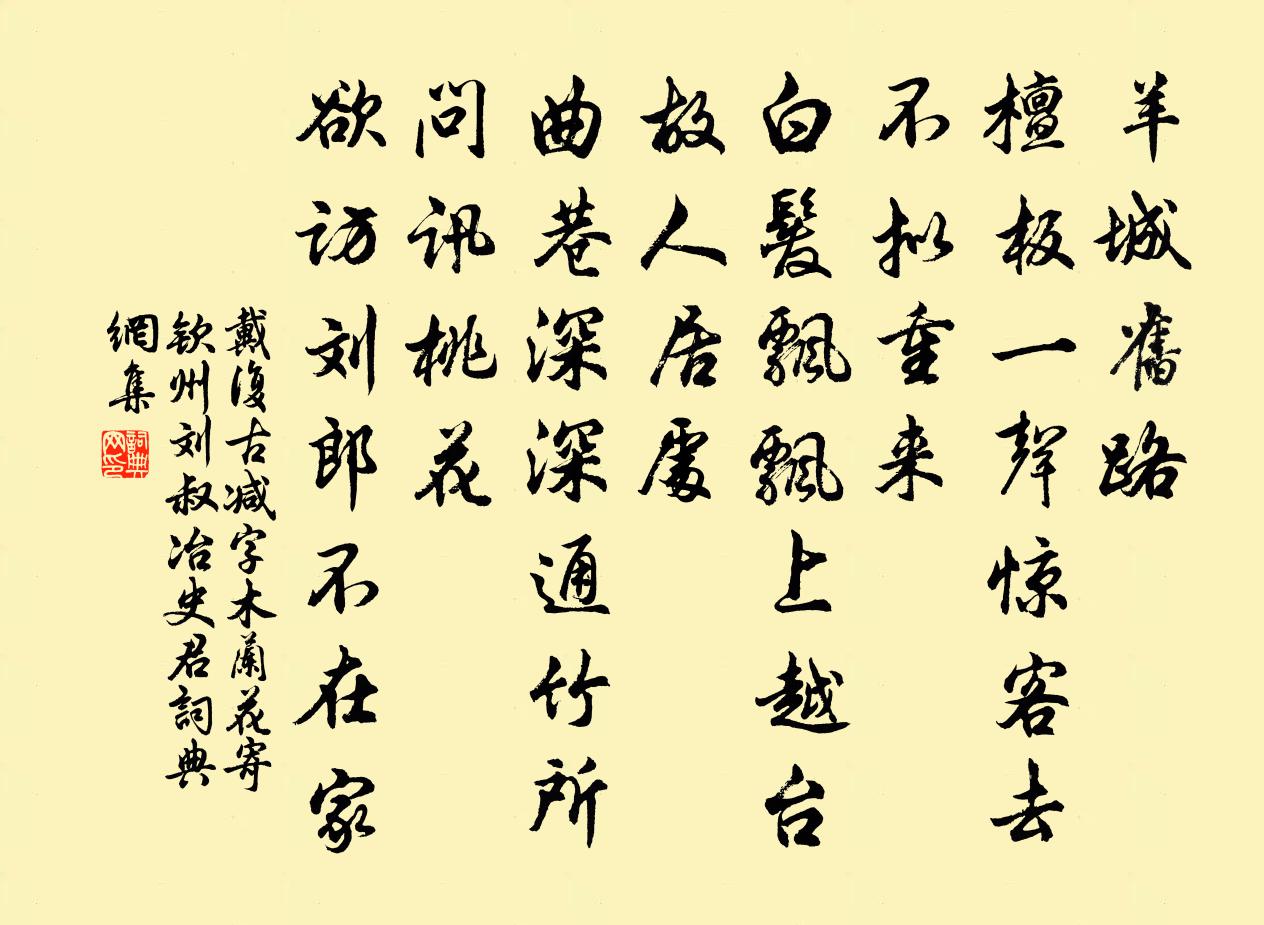 羊城舊路
檀板一聲惊客去
不拟重来
白髮飄飄上越台
故人居處
曲巷深深通竹所
問訊桃花
欲访刘郎不在家
戴復古减字木蘭花寄
钦州刘叔冶史君詞典
網集
詞典
网印